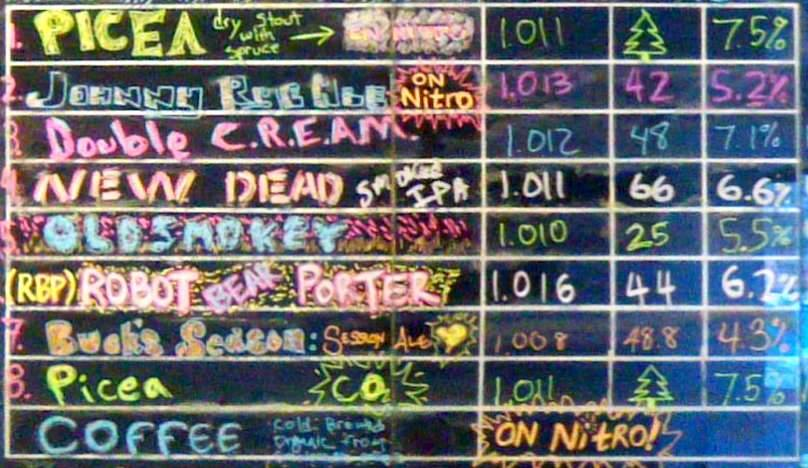 1. PICEA dry stout with spruce → ON NITRO 1.011 7.5%
2. Johnny ON Nitro 1.013 42 5.2%
3 Double C.R.E.A.M. 1.012 48 7.1%
4 NEW DEAD SMOKED IPA 1.011 66 6.6%
5 OLD SMOKEY 1.010 25 5.5%
(RBP) ROBOT BEAR PORTER 1.016 44 6.2%
7 Buck's Season: Session Ale 1.008 48.8 4.3%
8. Picea CO2 1.011 7.5%
COFFEE Cold Brewed Organic from ON NITRO!